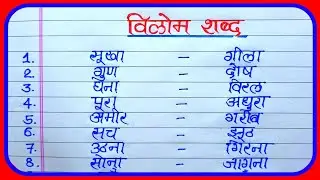 विलोम शब्द
1. सूखा – गीला
2. गुण – दोष
3. घना – विरल
4. पूरा – अधूरा
5. अमीर – गरीब
6. सच – झूठ
7. उठना – गिरना
8. सोना – जागना